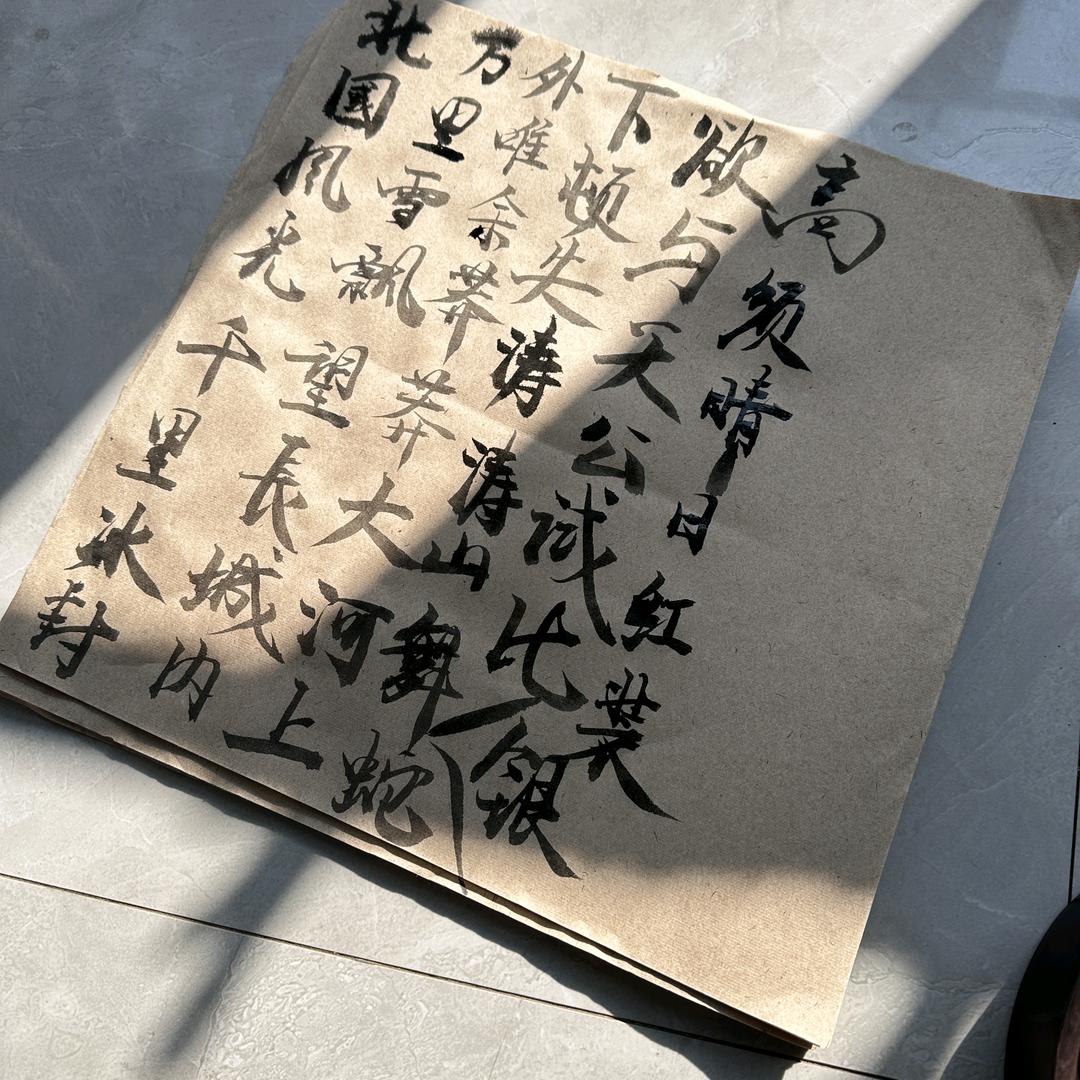 北國风光千里冰封
万里雪飘望長城内
外唯余莽莽大河上
下顿失涛涛山舞蛇
欲与天公试比銀
高须晴日红装